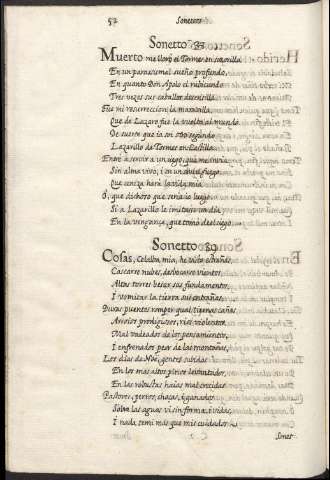 52 Sonetos
Sonetto
Muerto me llorò el Tormes en su orilla
En un parasismal sueño profundo,
En quanto Don Apolo el rubicundo
Tres vezes sus caballos desensilla.
Fue mi resurreccion la marauilla
Que de Lazaro fue la vuelta al mundo,
De suerte que ia soi otro segundo
Lazarillo de Tormes en Castilla.
Entrè a servir a un ciego, que me envia
Sin alma vivo, i en un dulce fuego
Que ceniza harà la vida mia.
O, que dichoso que seria io luego,
Si a Lazarillo le imitase un dia
En la venganza, que tomò del ciego.
Sonetto 39
Cosas, Celalba mia, he visto estrañas,
Cascarse nubes, desbocarse vientos,
Altas torres besar sus fundamentos,
I vomitar la tierra sus entrañas,
Duras puentes romper, qual tiernas cañas,
Arroios prodigiosos, rios violentos
Mal vadeados de los pensamientos,
I enfrenados peor de las montañas;
Los dias de Noè, gentes subidas
En los mas altos pinos leuantados,
En las robustas haias mas crecidas.
Pastores, perros, chozas, i ganados
Sobre las aguas vi sin forma, i vidas,
I nada temi mas que mis cuidados.
Sonet-